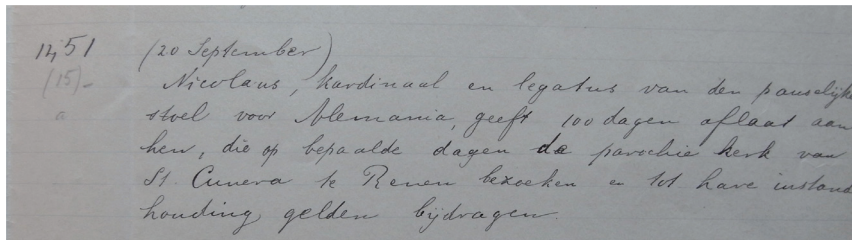 1451 (20 September)
(15)- Nicolaus, kardinaal en legatus van den pauselijke
a stoel voor Alemania, geeft 100 dagen aflaat aan
hen, die op bepaalde dagen de parochie kerk van
St. Cunera te Renen bezoeken en tot hare instand
houding gelden bijdragen.